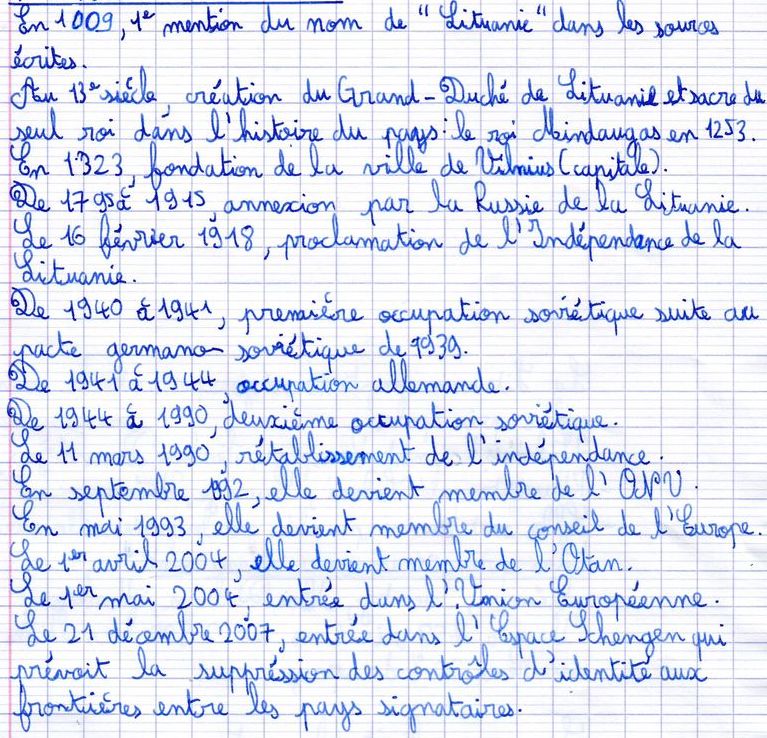 En 1009, 1e mention du nom de "Lituanie" dans les sources
écrites.
Au 13e siècle, création du Grand-Duché de Lituanie et sacre du
seul roi dans l'histoire du pays : le roi Mindaugas en 1253.
En 1323, fondation de la ville de Vilnius (capitale).
De 1795 à 1915, annexion par la Russie de la Lituanie.
Le 16 février 1918, proclamation de l'Indépendance de la
Lituanie.
De 1940 à 1941, première occupation soviétique suite au
pacte germano-soviétique de 1939.
De 1941 à 1944, occupation allemande.
De 1944 à 1990, deuxième occupation soviétique.
Le 11 mars 1990, rétablissement de l'indépendance.
En septembre 1992, elle devient membre de l'ONU.
En mai 1993, elle devient membre du conseil de l'Europe.
Le 1er avril 2004, elle devient membre de l'Otan.
Le 1er mai 2004, entrée dans l'Union Européenne.
Le 21 décembre 2007, entrée dans l'Espace Schengen qui
prévoit la suppréssion des contrôles d'identité aux
frontières entre les pays signataires.